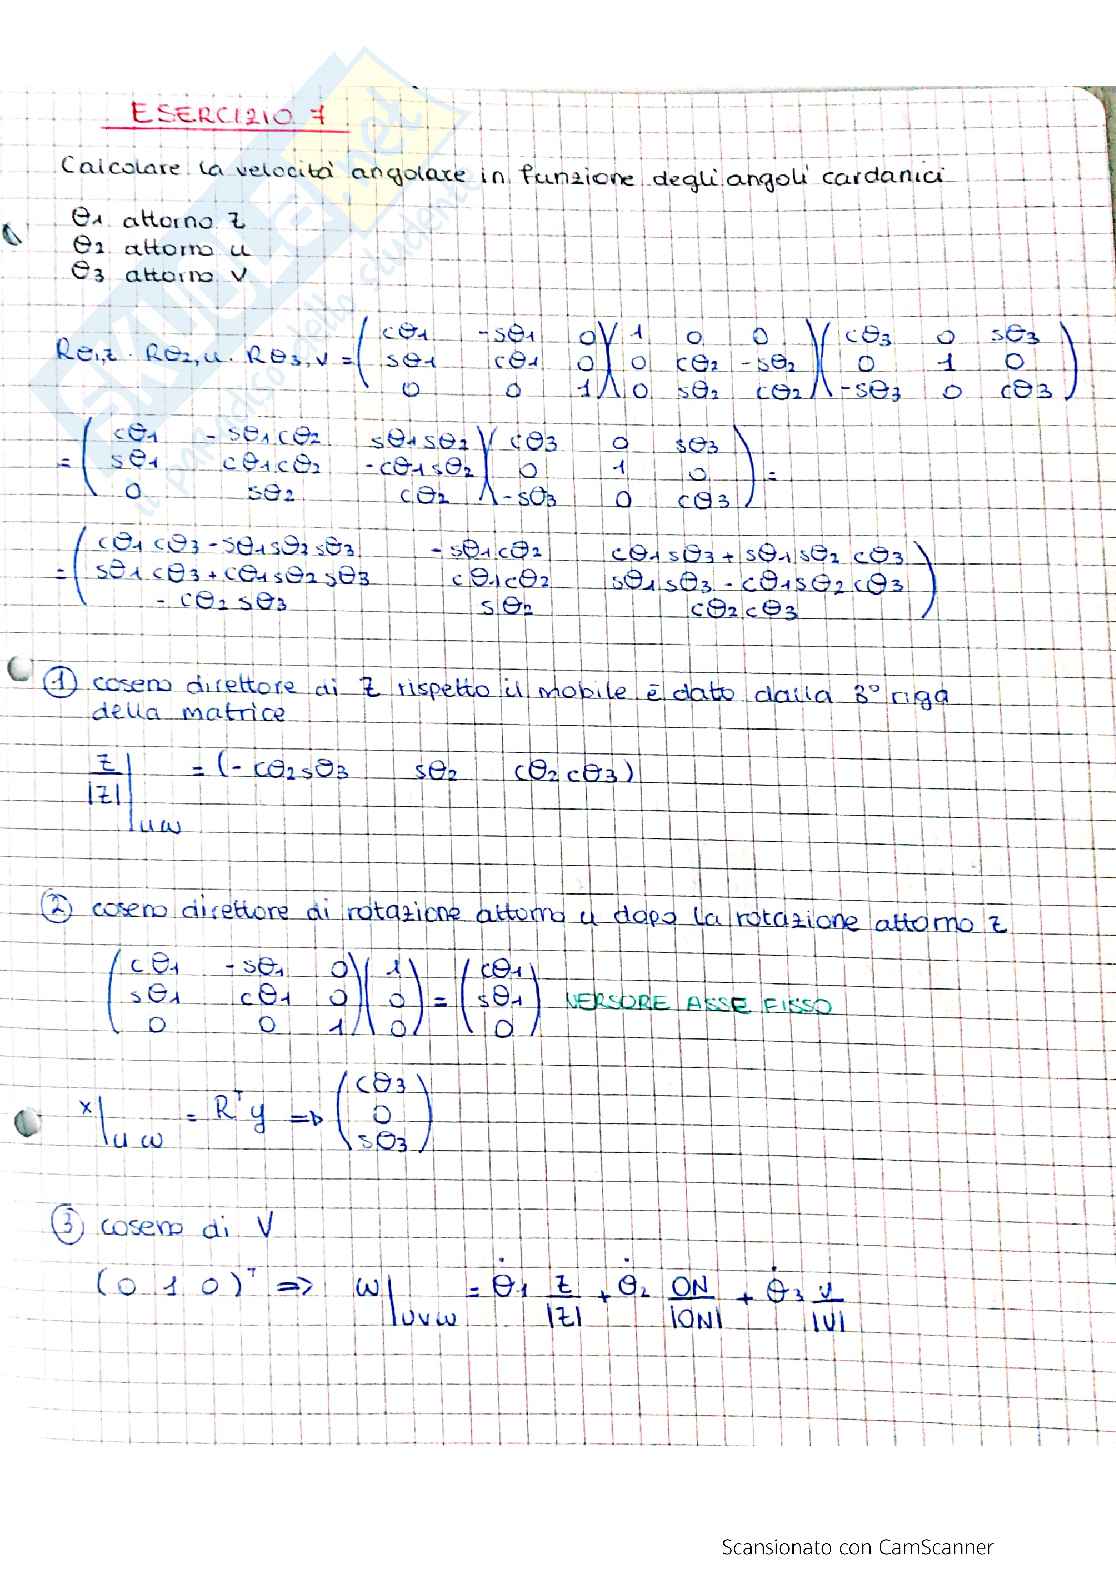 ESERCIZIO 7
Calcolare la velocità angolare in funzione degli angoli cardanici
θ1 attorno z
θ2 attorno u
θ3 attorno v
Rθ1,z · Rθ2,u · Rθ3,v = (cθ1 -sθ1 0)(1 0 0)(cθ3 0 sθ3)
(sθ1 cθ1 0)(0 cθ2 -sθ2)(0 1 0)
(0 0 1)(0 sθ2 cθ2)(-sθ3 0 cθ3)
= (cθ1 -sθ1cθ2 sθ1sθ2)(cθ3 0 sθ3) =
(sθ1 cθ1cθ2 -cθ1sθ2)(0 1 0)
(0 sθ2 cθ2)(-sθ3 0 cθ3)
= (cθ1cθ3-sθ1sθ2sθ3 -sθ1cθ2 cθ1sθ3+sθ1sθ2cθ3)
(sθ1cθ3+cθ1sθ2sθ3 cθ1cθ2 sθ1sθ3-cθ1sθ2cθ3)
(-cθ2sθ3 sθ2 cθ2cθ3)
① coseno direttore di z rispetto il mobile è dato dalla 3° riga
della matrice
z/|z| |uω = (-cθ2sθ3 sθ2 cθ2cθ3)
② coseno direttore di rotazione attorno u dopo la rotazione attorno z
(cθ1 -sθ1 0)(1) (cθ1)
(sθ1 cθ1 0)(0) = (sθ1) VERSORE ASSE FISSO
(0 0 1)(0) (0)
x|uω = Rᵀy => (cθ3)
(0)
(sθ3)
③ coseno di v
(0 1 0)ᵀ => ω|uvω = θ̇1 z/|z| + θ̇2 ON/|ON| + θ̇3 v/|v|
Scansionato con CamScanner